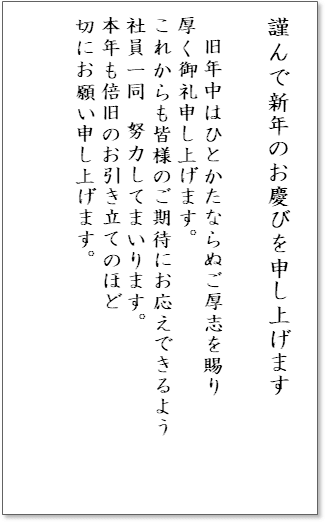 謹んで新年のお慶びを申し上げます
旧年中はひとかたならぬご厚志を賜り
厚く御礼申し上げます。
これからも皆様のご期待にお応えできるよう
社員一同　努力してまいります。
本年も倍旧のお引き立てのほど
切にお願い申し上げます。